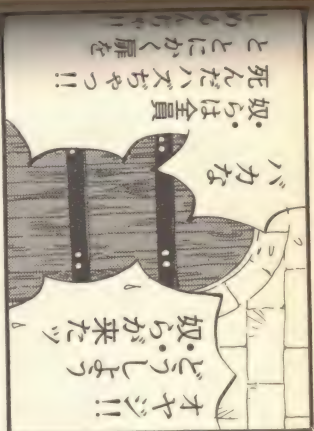 オヤジ!!
どうしよっ
奴らが来たッ
バカな
奴らは全員
死んだハズぢゃっ!!
と とにかく扉を
しめるんぢゃ!!